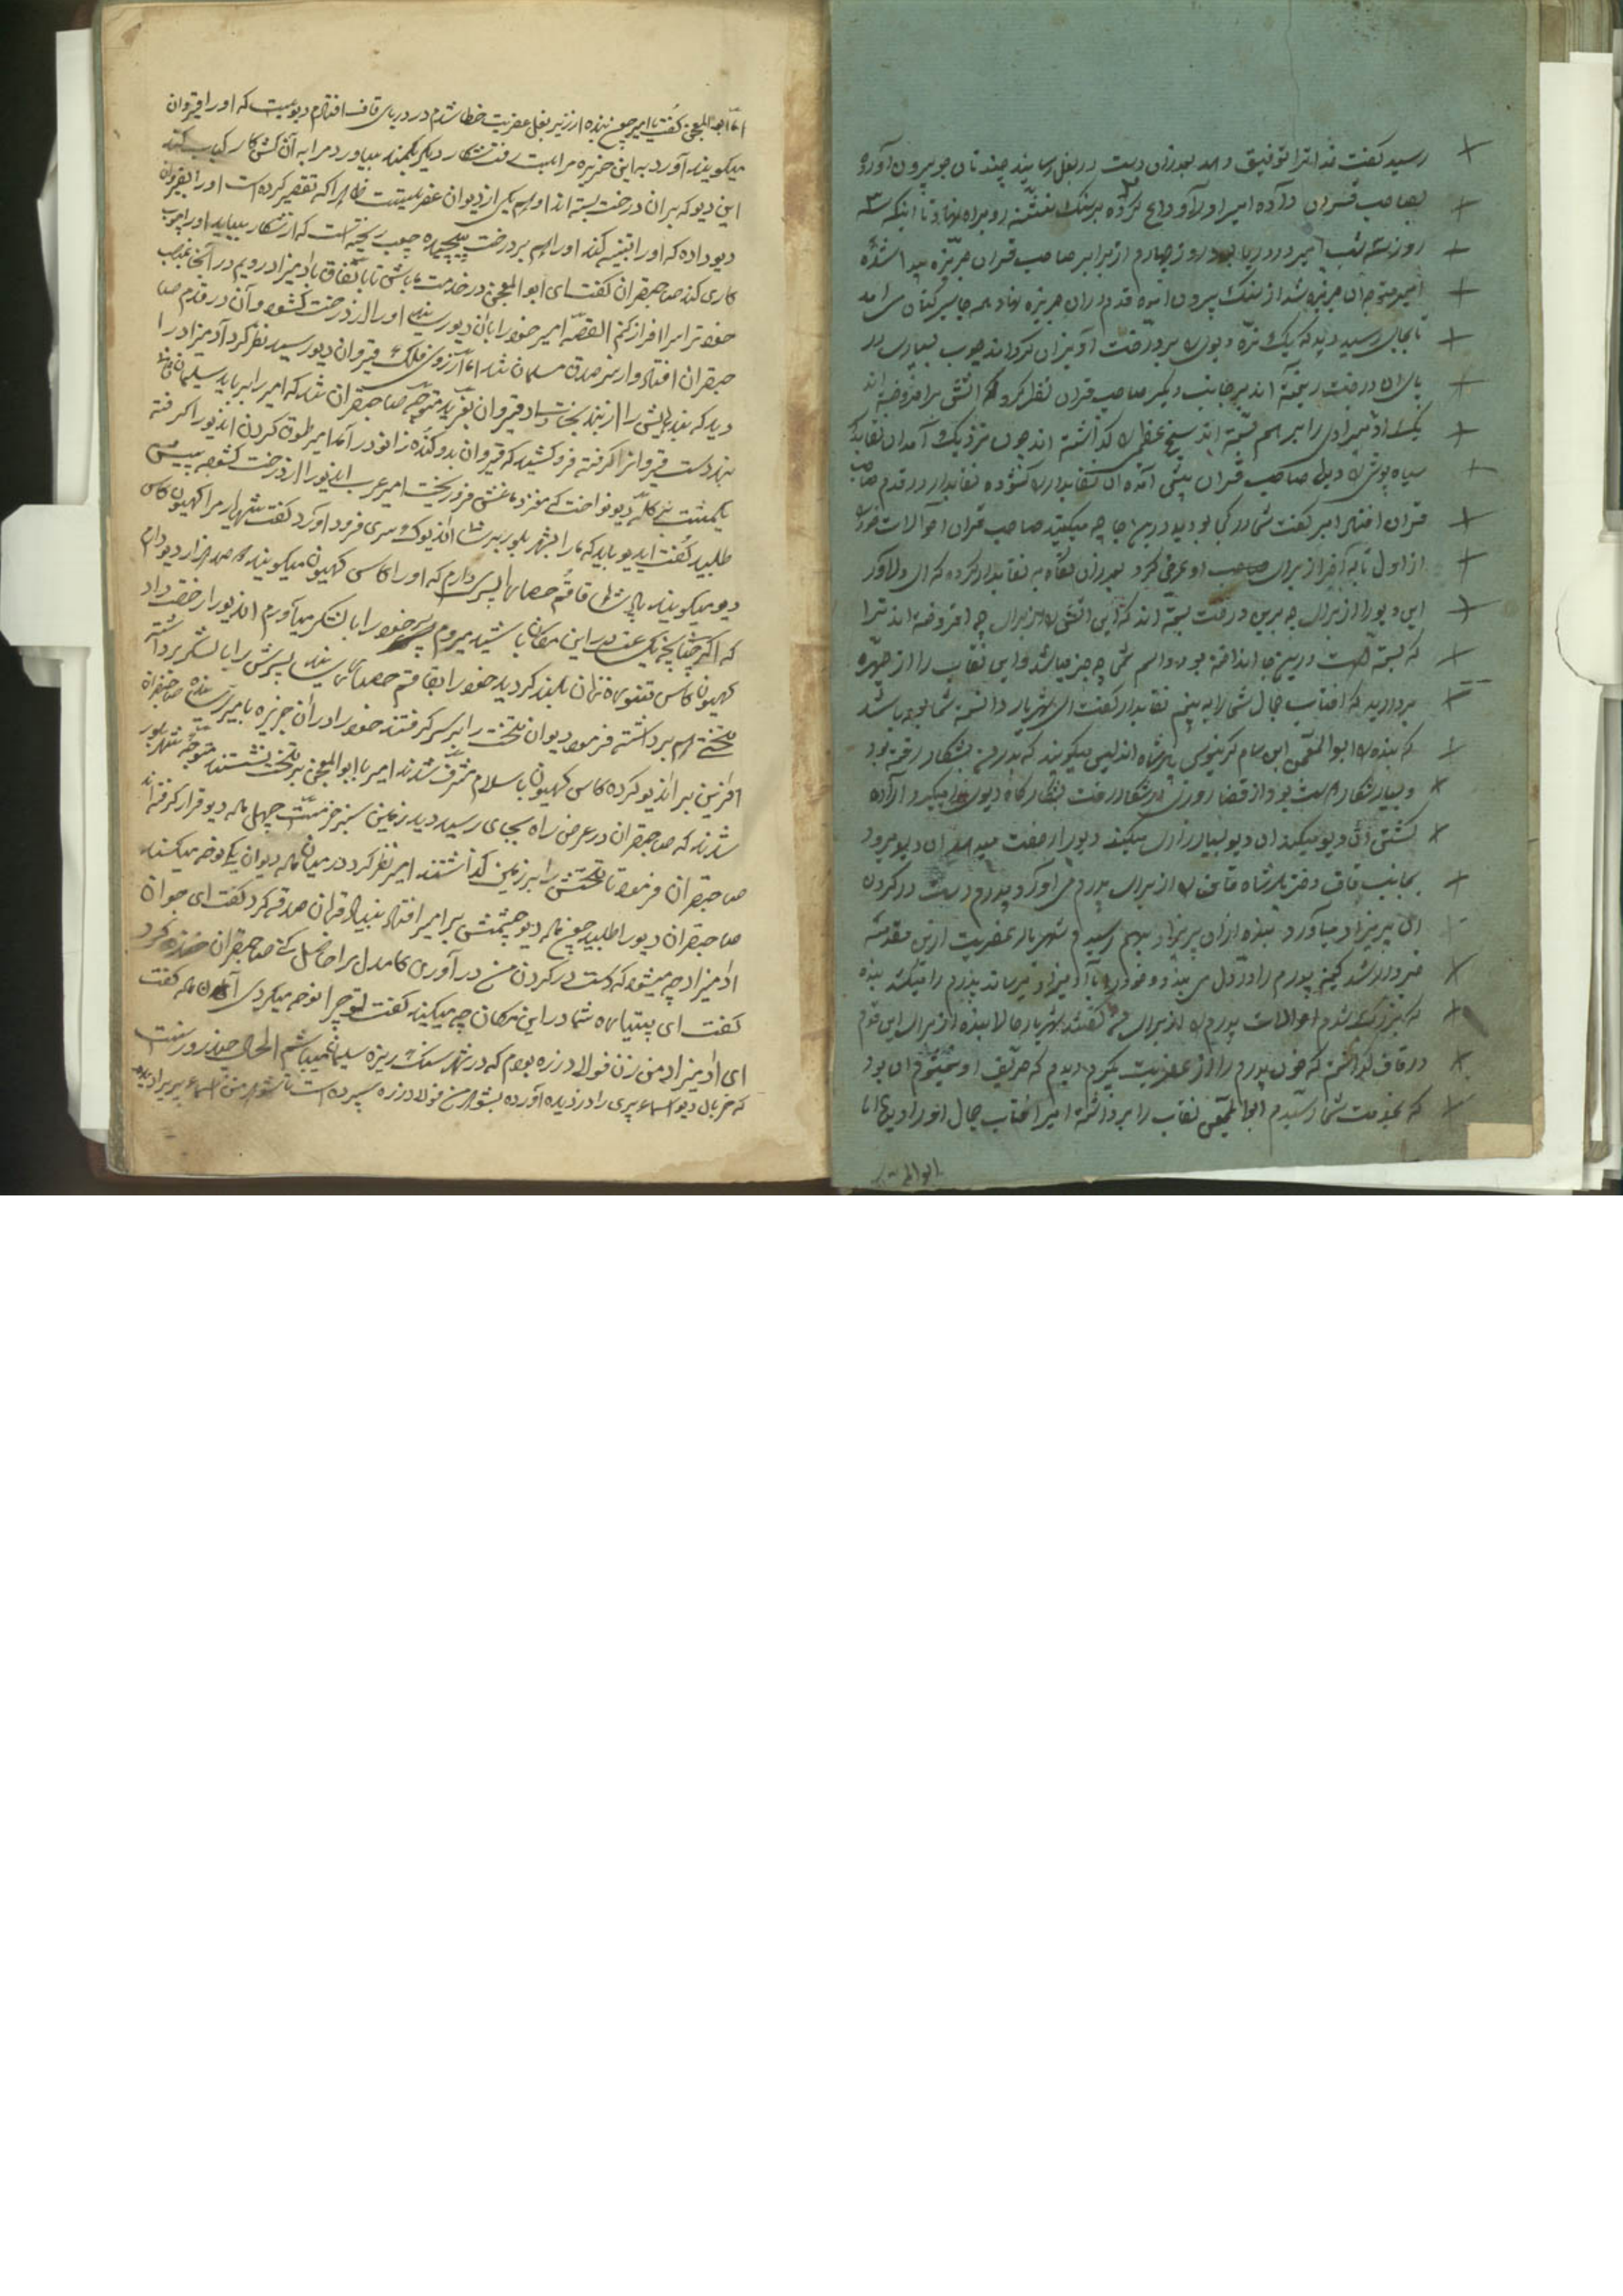 رسید گفت خدا ترا توفیق دهد بعد از ان دست در بغل رسانید چند نان جو بیرون آورده
بصاحب قران داده امیر اولاً وداع کرده بر نهنگ نشسته رو براه نهاد تا اینکه سه
روز سه شب امیر در دریا بود روز چهارم از برابر صاحب قران جزیره پیدا شده
امیر متوجه ان جزیره شد از نهنگ بیرون آمده قدم در ان جزیره نهاد همه جا سیر کنان می امد
تا بجای رسید دید که یک نره دیوی بر درخت آویزان کرده اند چوب بسیاری در
پای ان درخت ریخته اند بر جانب دیگر صاحب قران نظر کرد که اتشی برافروخته اند
یک ادمیزادی را بر هم بسته اند سیخ عظیمی گذاشته اند چون نزدیک آمد ان نقابدار
سیاه پوش دید صاحب قران پیش آمده ان نقابدار گشوده نقابدار در قدم صاحب
قران افتاد امیر گفت شما در کجا بودید در این جا چه میکنید صاحب قران احوالات خود را
از اول تا به آخر از برای او عرض کرد بعد از ان نگاه به نقابدار کرده که ای دلاور
این دیو را از برای چه برین درخت بسته اند که این اتش از برای چه افروخته اند ترا
که بسته است درین جا انداخته بود و اسم شما چه چیز میباشد و این نقاب را از چهره
بردارید که افتاب جمال شما را به بینم نقابدار گفت ای شهریار دانسته شما بوده باشد
که بنده ابوالمعجن ابن سام گر نبوسی پادشاه اندلس میگویند که پدرم بشکار رفته بود
و بسیار شکار دوست بود از قضا روزی در شکار رفت شکارگاه دیوی را میگیرد اراده
کشتن آن دیو میکند ان دیو بسیار زاری میکند دیو را رخصت میدهد ان دیو میرود
بجانب قاف دختر پادشاه قاف را از برای پدرم می اورد و پدرم دست در گردن
ان پریزاد میآورد بنده از ان پریزاد بهم رسیدم شهریار عفریت ازین مقدمه
خبردار شد کینه پدرم را در دل می بندد و خود را باد میزند میرساند پدرم را میکشد بنده
که بزرگ شدم احوالات پدرم از برای من گفتند شهریار حالا بنده از برای این قدم
در قاف گذاشتم که خون پدرم را از عفریت بگیرم دیدم که حریف او نمیشوم این بود
که بخدمت شما رسیدم ابوالمعجن نقاب را برداشته امیر افتاب جمال انور او دید اما
ابوالمعجن
اما ابوالمعجن گفت یا امیر چون بنده از زیر بغل عفریت خطا شدم در دریای قاف افتادم دیویست که او را قیروان
میگویند آورد به این جزیره مرا بست رفت شکار دیگر بکند بیاورد مرا به آن اتش کار کباب کند
این دیو که بر ان درخت بسته اند او هم یکی از دیوان عفریتست ظاهرا که تقصیر کرده است او را بقیروان
دیو داده که او را تنبیه کند او را هم بر درخت پیچیده چوب ریخته است که از شکار بیاید او را چوب
کاری کند صاحبقران گفت ای ابوالمعجن در خدمت ما باش تا باتفاق باد میزاد رویم در آنجا بمذهب
خود ترا سرافراز کنم القصه امیر خود را بآن دیو رسانید او را از درخت گشود و آن در قدم صا
حبقران افتاد و از سر صدق مسلمان شد اما از روی فلک قیروان دیو رسید نظر کرد آدمیزاد را
دید که بندیش را از بند نجات داد قیروان بغرید متوجه صاحبقران شد که امیر را برباید سلیمان
بند دست قیروانرا گرفته فرو کشید که قیروان بدو کنده زانو در آمد امیر طوق گردن اندیو را گرفته
یکمشت بر کله دیو نواخت که مغز دماغش فرو ریخت امیر عرب اندیو را از درخت گشود پیش
طلبید گفت ایدیو باید که ما را بشهر بلور برسانی اندیو کوس سری فرود اورد گفت شهریار مرا کهیون کاس
دیو میگویند پادشاه قاقم حصارم پسری دارم که او را کاس کهیون میگویند که صد هزار دیو دارم
که اگر چنانچه یک عت در این مکان باشید میروم پسر خود را با لشکر میآورم اندیو را رخصت داد
کهیون کاس تنوره زنان بلند گردید خود را بقاقم حصار رسانید پسرش را با لشکر برداشته
تختی هم برداشته فرمود دیوان تخت را بر سر گرفتند خود را در ان جزیره بامیر رسانیده صاحبقران
افرین بر اندیو کرده کاس کهیون باسلام مشرف شدند امیر با ابوالمعجن بر تخت نشستند متوجه شهر بلور
شدند که صاحبقران در عرض راه بجای رسید دید زمین سبز خرمیست چهل ماده دیو قرار گرفته اند
صاحبقران فرمود تا تختش را بر زمین گذاشتند امیر نظر کرد در میان ماده دیوان یکی نوحه میکند
صاحبقران دیو را طلبید چون ماده دیو چشمش بر امیر افتاد بنیاد قربان صدقه کرد گفت ای جوان
ادمیزاد چه میشود که دست در گردن من در آوری کام دل مرا حاصل کنی صاحبقران خنده کرد
گفت ای پتیاره شما در این مکان چه میکنید گفت تو چرا نوحه میکردی آن ماده گفت
ای ادمیزاد من زن فولاد زره بودم که در شهر سنگ ریزه سلیمان میباشم الحال چند روزست
که خربال دیو اسماء پری را دزدیده آورده بشوهر من فولاد زره سپرده است تا شوهر من اسماء پریزاد دیده